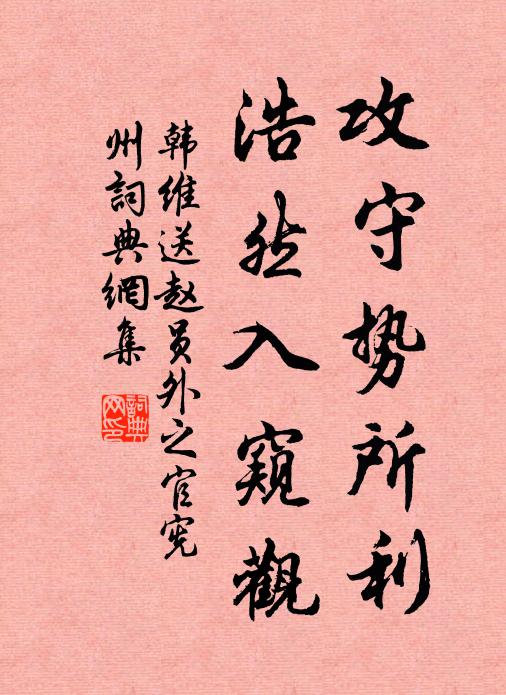 攻守势所利
浩然入窥觀
韩维送赵员外之官兖
州詞典網集
詞典
网印